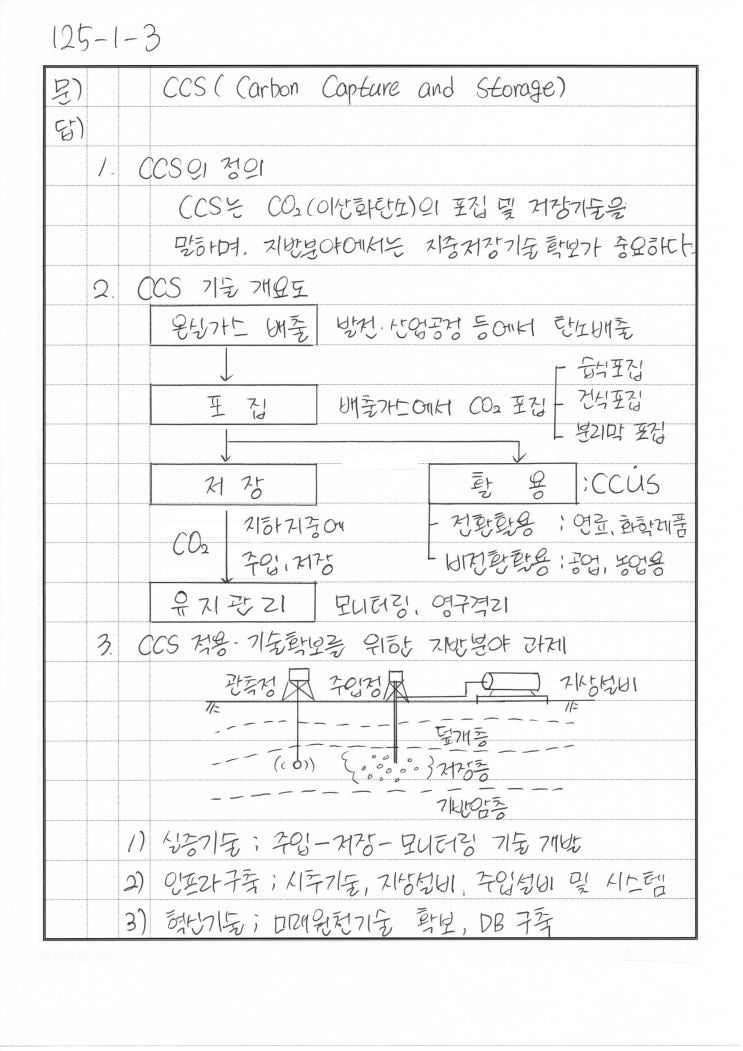 125-1-3
문) CCS ( Carbon Capture and Storage)
답)
1. CCS의 정의
CCS는 CO₂(이산화탄소)의 포집 및 저장기술을
말하며, 지반분야에서는 지중저장기술확보가 중요하다.
2. CCS 기술 개요도
온실가스 배출 발전·산업공정 등에서 탄소배출
포집 배출가스에서 CO₂ 포집
습식포집
건식포집
분리막 포집
저장 활용 : CCUS
CO₂ 지하지중에
주입, 저장
- 전환활용 ; 연료, 화학제품
- 비전환활용 ; 공업, 농업용
유지관리 모니터링, 영구격리
3. CCS 적용·기술확보를 위한 지반분야 과제
관측정 주입정 지상설비
덮개층
저장층
기반암층
1) 실증기술 ; 주입-저장-모니터링 기술 개발
2) 인프라구축 ; 시추기술, 지상설비, 주입설비 및 시스템
3) 혁신기술 ; 미래원천기술 확보, DB 구축